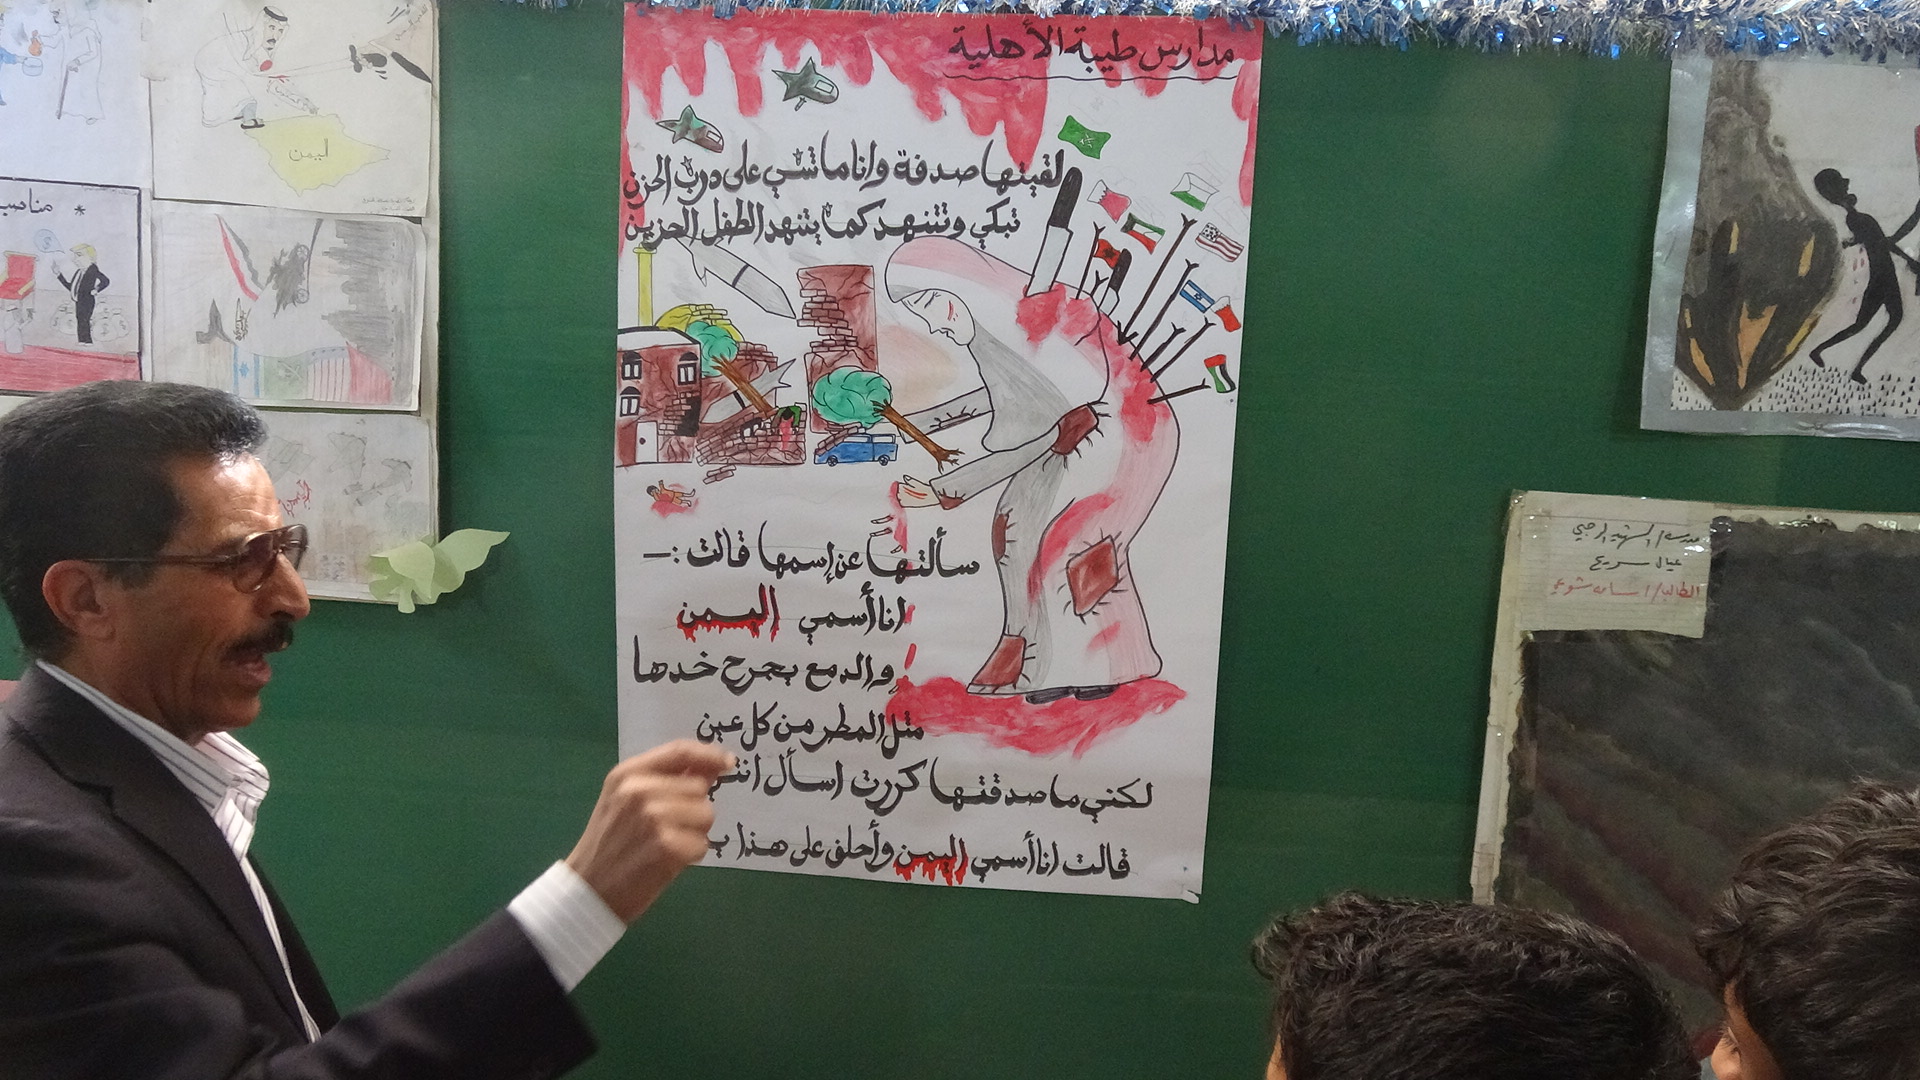 مدارس طيبة الأهلية
لقيتها صدفة وانا ماشي على درب الحزن
تبكي وتتنهد كما يتنهد الطفل الحزين
سألتها عن إسمها قالت :-
انا أسمي اليمن
والدمع يجرح خدها
مثل المطر من كل عين
لكني ما صدقتها كررت اسأل
قالت انا أسمي اليمن وأحلق على هذا
اليمن
* مناسب
عيال سريع
الطالب /